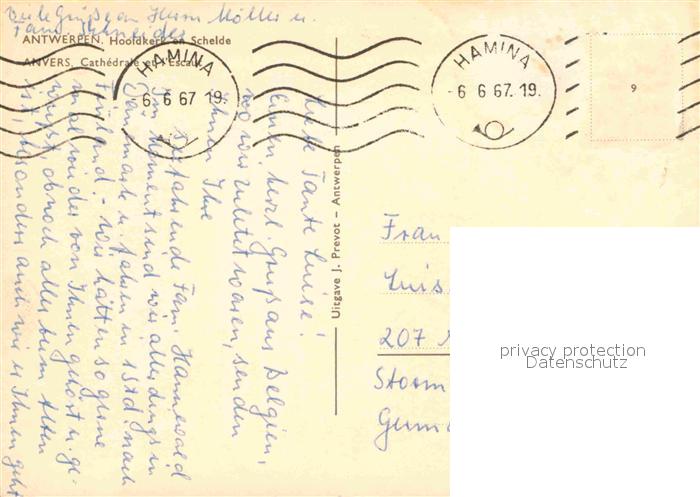 Viele Grüße an Herrn Möller u.
Fam. Schneider
ANTWERPEN. Hoofdkerk en Schelde
ANVERS. Cathédrale et Escaut
HAMINA
6. 6 67. 19.
HAMINA
6 6 67. 19.
9
Uitgave J. Prevot – Antwerpen
Liebe Tante Luise!
Einen herzl. Gruß aus Belgien,
wo wir zuletzt waren, senden
Ihnen Ihre
fahrende Fam. Hannewald
Im Moment sind wir allerdings in
Dänemark u. fahren in 1 Std. nach
Finnland. – Wir hätten so gerne
mal wieder von Ihnen gehört u. ge-
wüßt, ob noch alles beim Alten
ist, besonders auch wie es Ihnen geht
Frau
Luis
207
Storm
Germ
privacy protection
Datenschutz